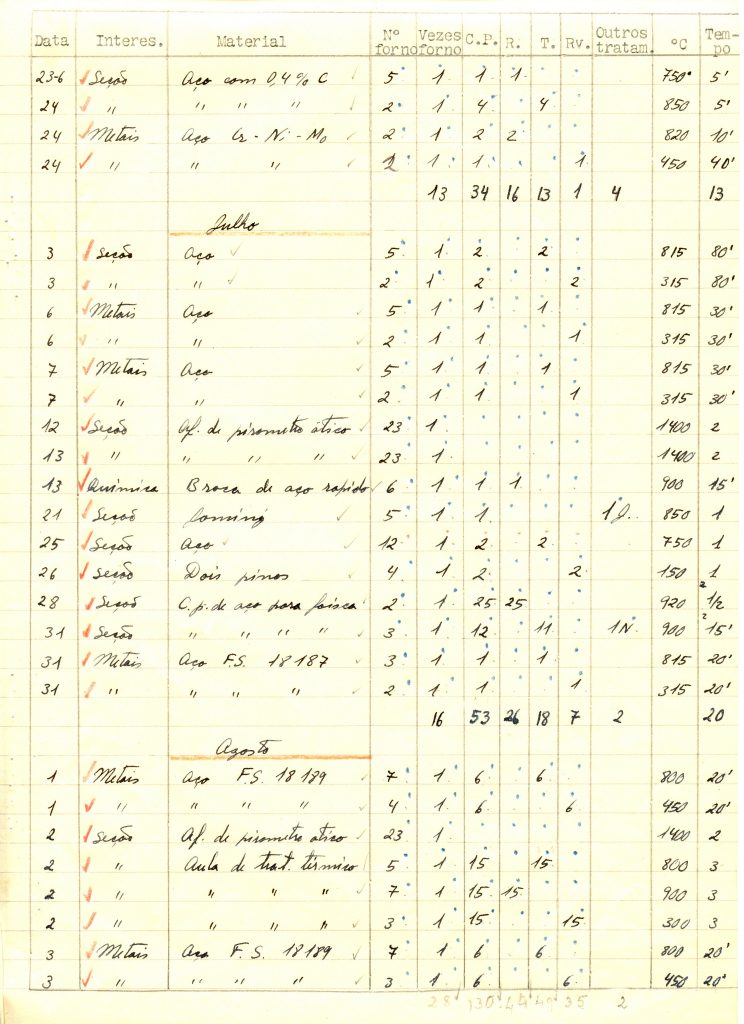 Data Interes. Material Nº forno Vezes forno C.P. R. T. Rv. Outros tratam. ºC Tempo
23-6 Seção Aço com 0,4% C 5 1 1 1 750° 5'
24 " " " " 2 1 4 4 850 5'
24 Metais Aço Cr-Ni-Mo 2 1 2 2 820 10'
24 " " " 2 1 1 1 450 40'
13 34 16 13 1 4 13
Julho
3 Seção Aço 5 1 2 2 815 80'
3 " " 2 1 2 2 315 80'
6 Metais Aço 5 1 1 1 815 30'
6 " " 2 1 1 1 315 30'
7 Metais Aço 5 1 1 1 815 30'
7 " " 2 1 1 1 315 30'
12 Seção Af. de pirometro ótico 23 1 1400 2
13 " " " " 23 1 1400 2
13 Química Broca de aço rapido 6 1 1 1 900 15'
21 Seção 5 1 1 1 850 1
25 Seção Aço 12 1 2 2 750 1
26 Seção Dois pinos 4 1 2 2 150 1
28 Seção C.p. de aço para faisca 2 1 25 25 920 1/2
31 Seção " " " " 3 1 12 11 1N. 900 15'
31 Metais Aço F.S. 18187 3 1 1 1 815 20'
31 " " " " 2 1 1 1 315 20'
16 53 26 18 7 2 20
Agosto
1 Metais Aço F.S. 18189 7 1 6 6 800 20'
1 " " " " 4 1 6 6 450 20'
2 Seção Af. de pirometro ótico 23 1 1400 2
2 " Aula de trat. térmico 5 1 15 15 800 3
2 " " " " 7 1 15 15 900 3
2 " " " " 3 1 15 15 300 3
3 Metais Aço F.S. 18189 7 1 6 6 800 20'
3 " " " " 3 1 6 6 450 20'
28 130 44 35 2